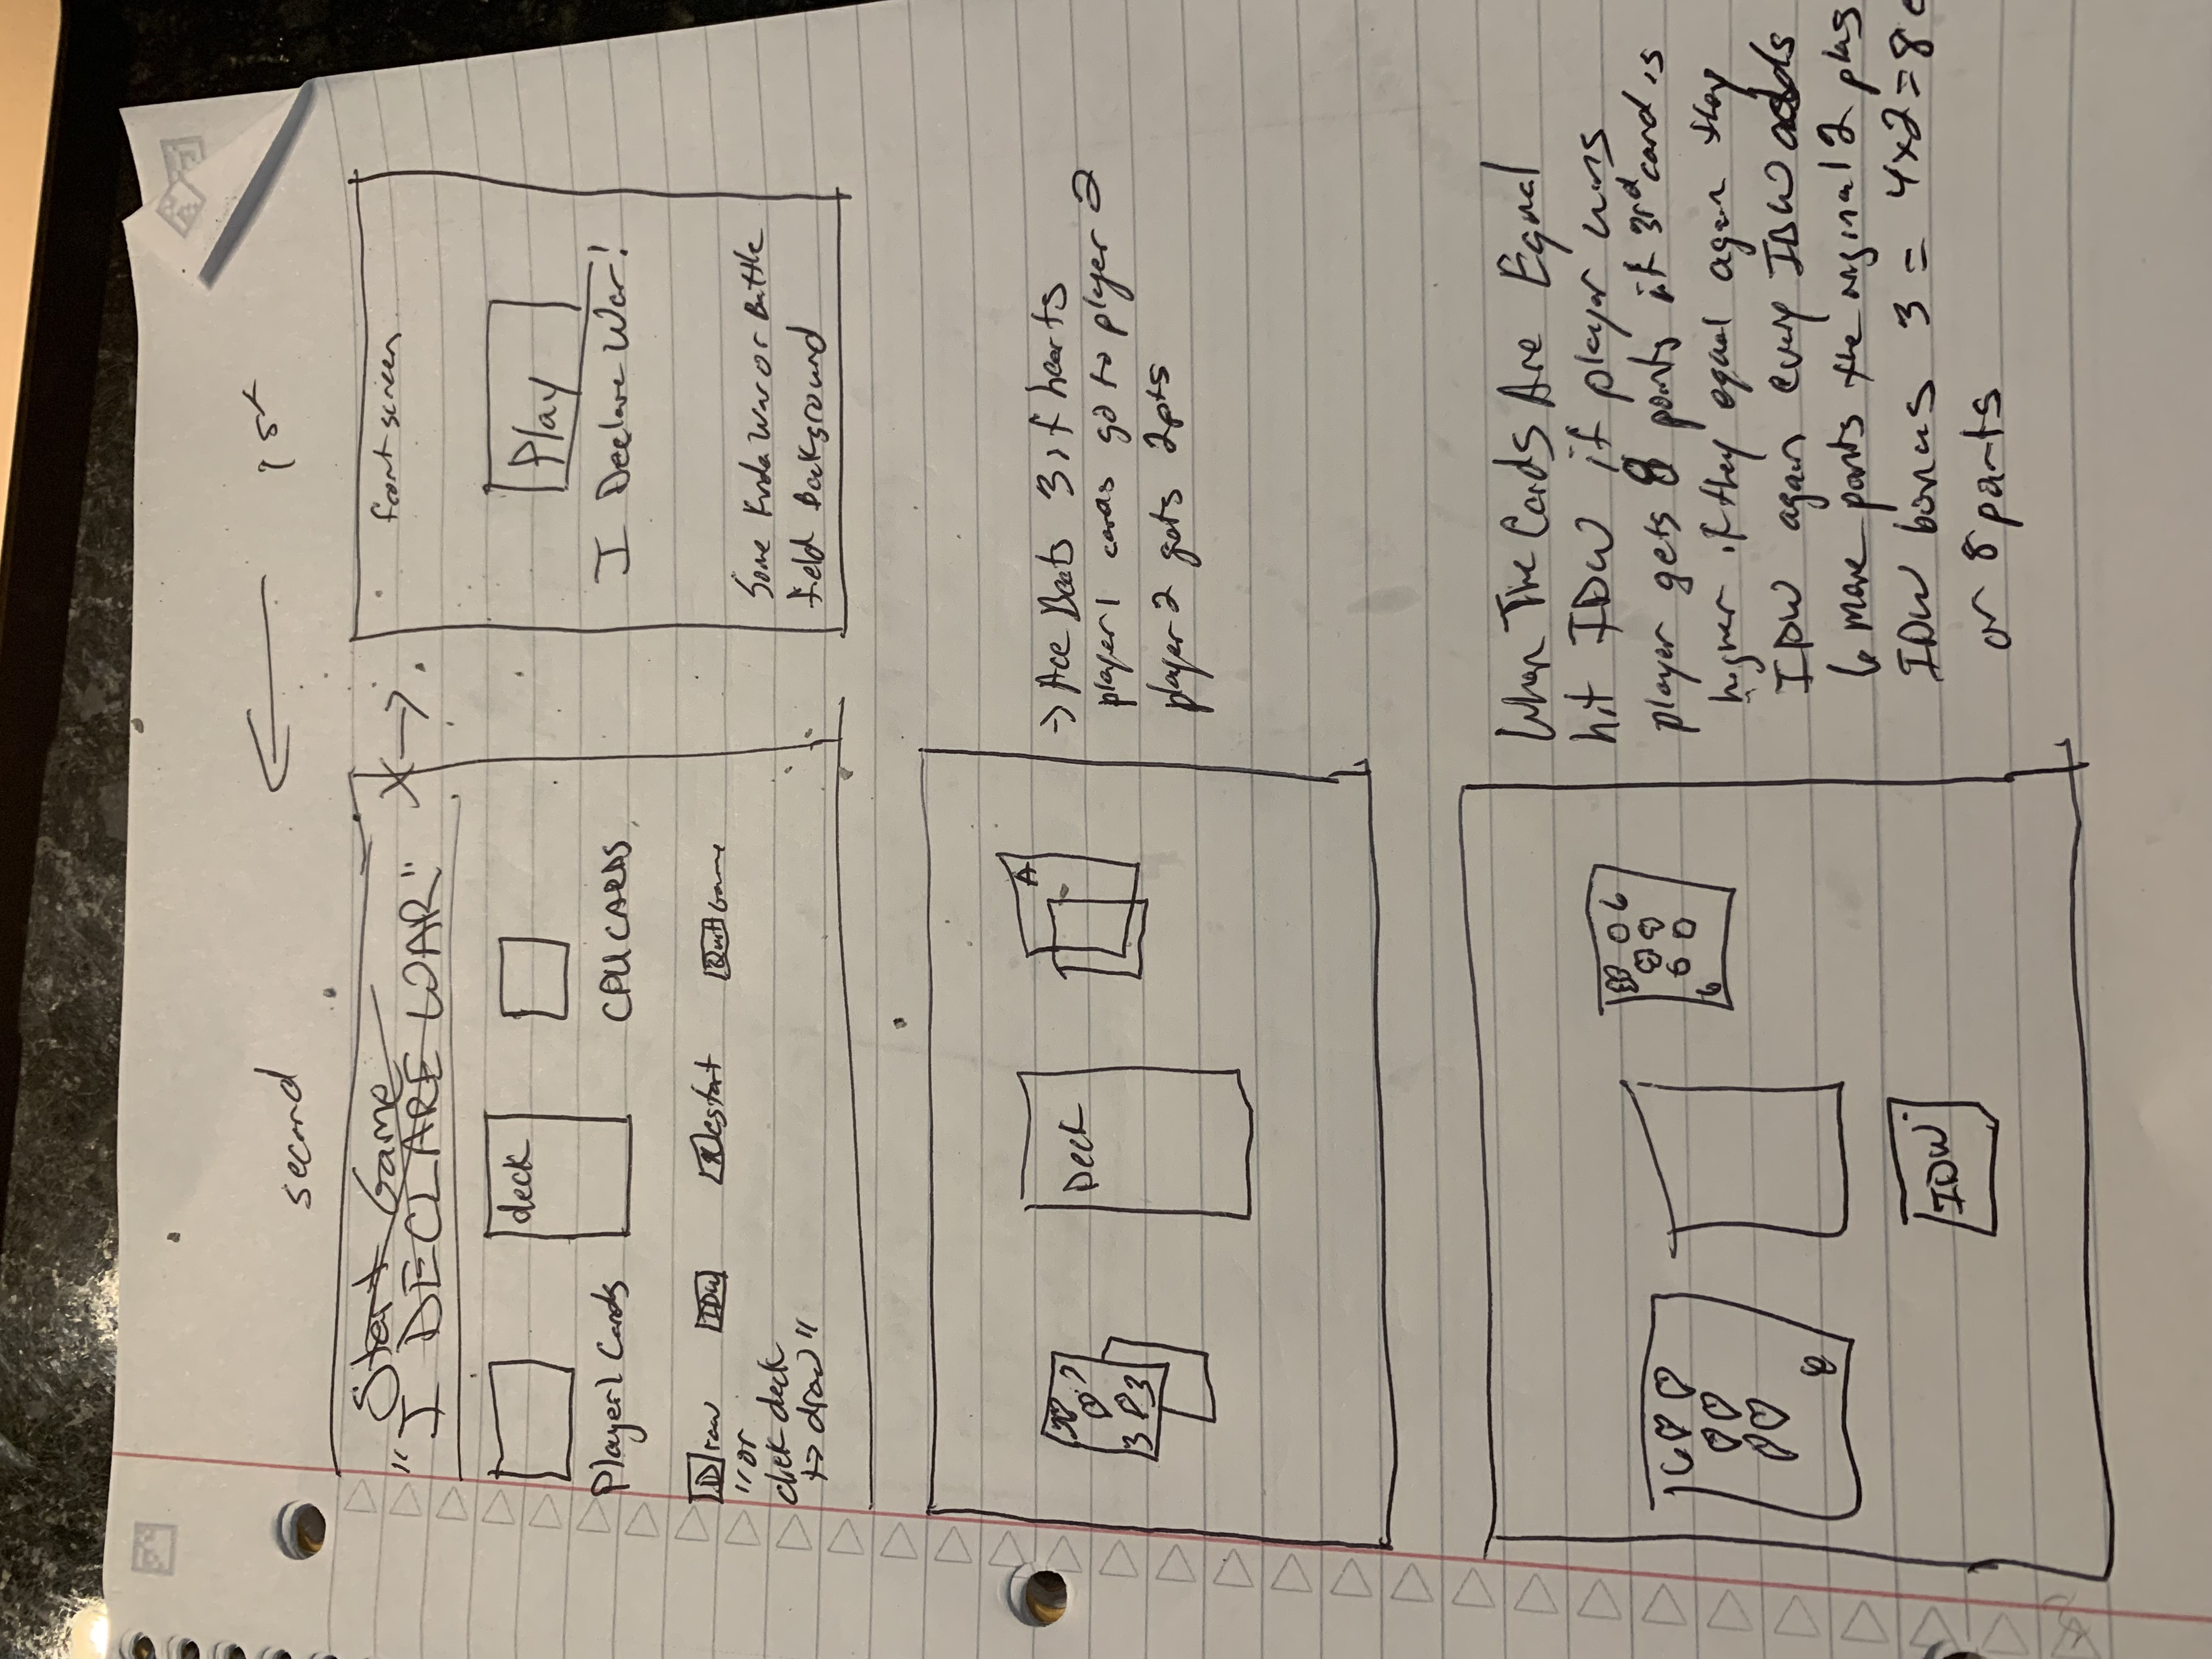 second
1st
Start Game
"I DECLARE WAR"
X
deck
Player 1 Cards
CPU CARDS
Draw
IDW
Restart
Quit Game
"or
click deck
to draw"
front screen
Play
I Declare War!
Some Kinda War or Battle
field Background
3
3
3
Deck
A
→ Ace Beats 3 of hearts
player 1 cards go to player 2
player 2 gets 2pts
6
6
6
6
IDW
When The Cards Are Equal
hit IDW if player wins
player gets 8 points if 3rd card is
higher if they equal again they
IDW again every IDW adds
6 more points the original 2 plus
IDW bonus 3 = 4x2=8
or 8 points